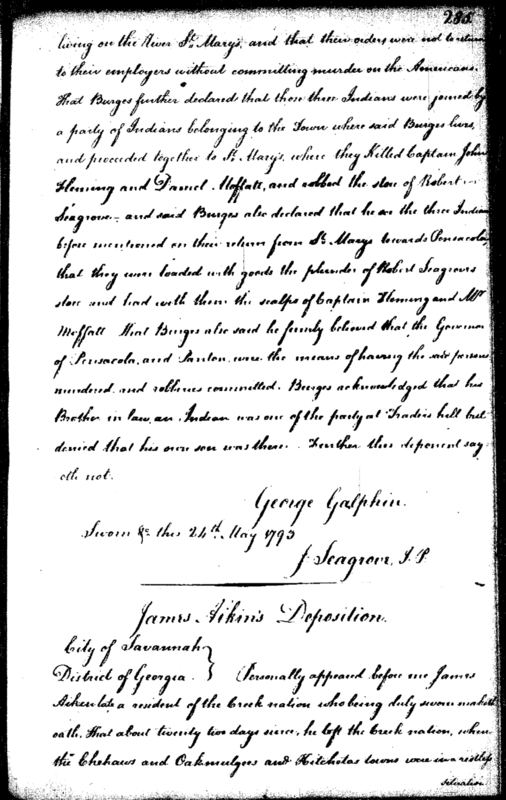 285
living on the River St. Mary's, and that their orders were not to return
to their employers without committing murder on the Americans.
That Burges further declared that those three Indians were joined by
a party of Indians belonging to the Town where said Burges lives,
and proceeded together to St. Mary's, where they Killed Captain John
Fleming and Daniel Moffatt, and robbed the store of Robert
Seagrove and said Burges also declared that he saw the three Indians
before mentioned on their return from St. Marys towards Pensacola,
that they were loaded with goods the plunder of Robert Seagroves
store and had with them the scalps of Captain Fleming and Mr
Moffatt That Burges also said he firmly believed that the Governor
of Pensacola, and Panton, were the means of having the said persons
murdered and robberies committed. Burges acknowledged that his
Brother in law, an Indian was one of the party at Traders hill but
denied that his own son was there. Further this deponent say-
eth not.
George Galphin.
Sworn &c this 24th. May 1793
J Seagrove, J. P.
James Aikin's Deposition.
City of Savannah
District of Georgia. } Personally appeared before me James
Aiken late a resident of the Creek nation who being duly sworn maketh
oath, That about twenty two days since, he left the Creek nation, when
the Chehaws and Oakmulgees and Hitchetas towns were in a restless
situation